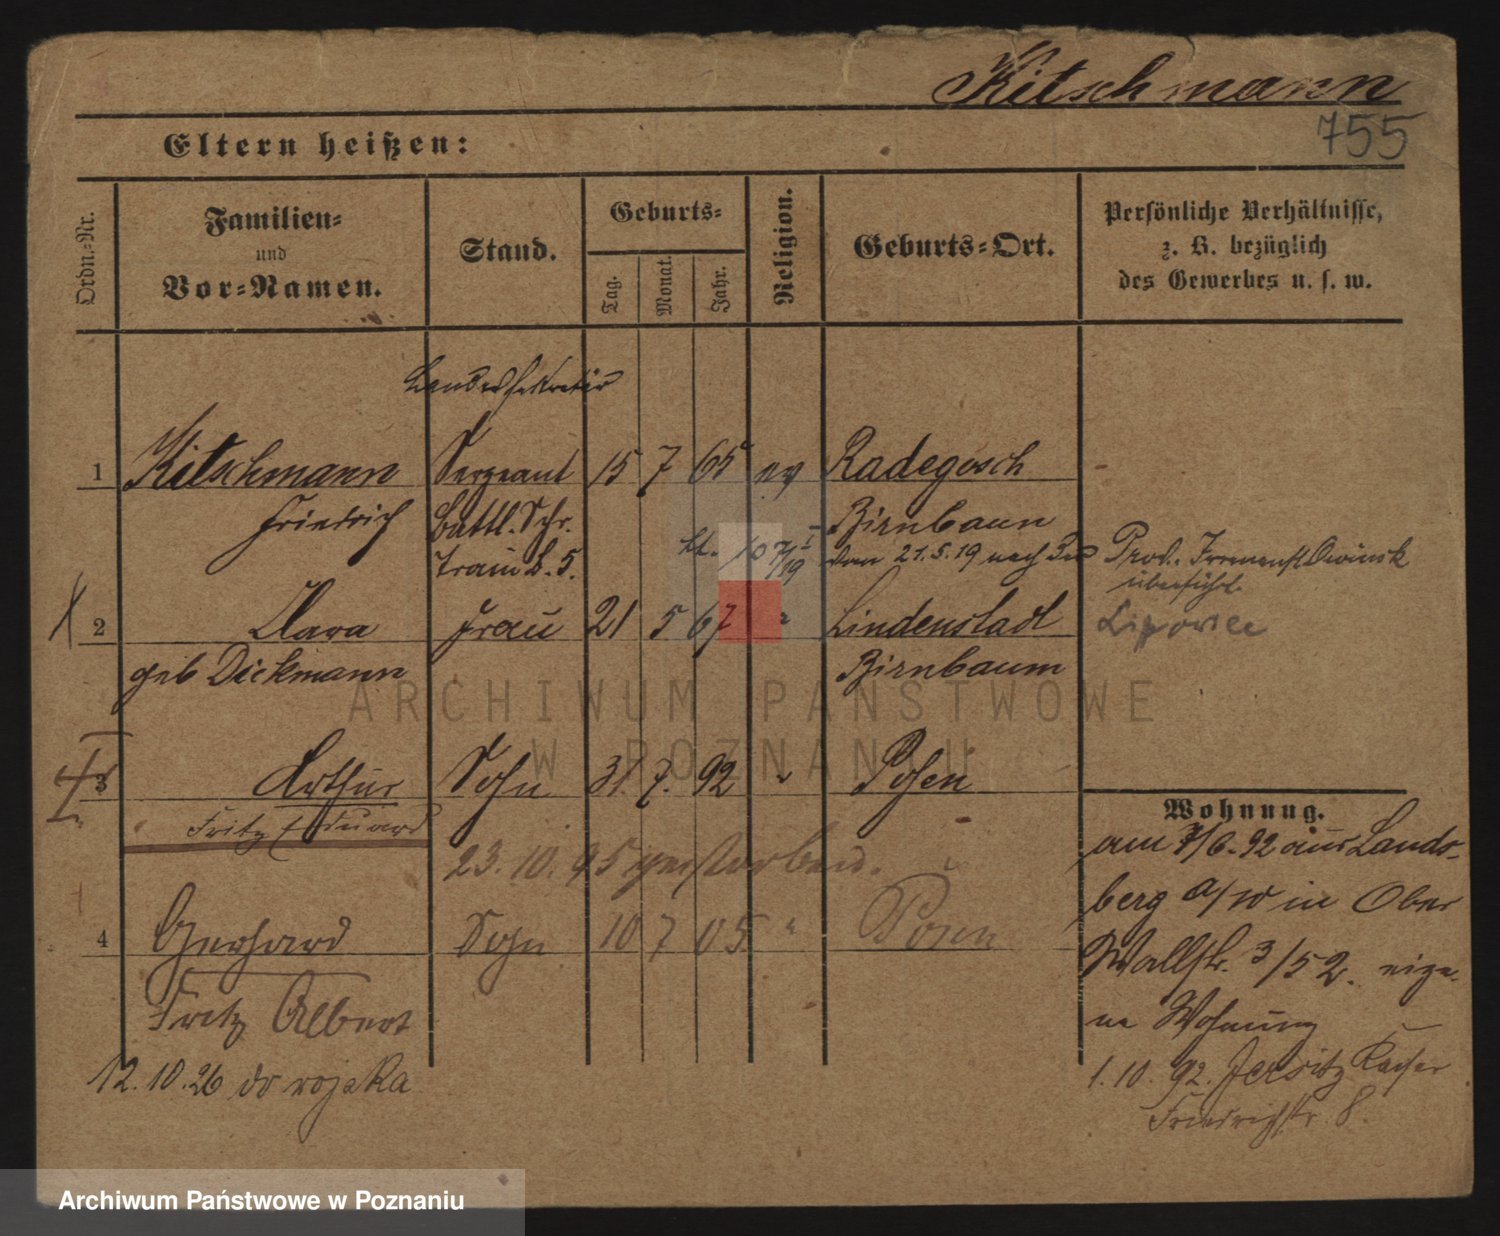 Kitschmann
755
Eltern heißen:
Ordn.-Nr.
Familien-
und
Vor-Namen.
Stand.
Geburts-
Tag.
Monat.
Jahr.
Religion.
Geburts-Ort.
Persönliche Verhältnisse,
z. B. bezüglich
des Gewerbes u. s. w.
Landessekretär
1 Kitschmann Sergeant 15 7 65 ev Radegosch
Friedrich Battl. Schr. Birnbaum
Train B. 5. 10 7/I 19 21.5.19 nach Prov. Irrenanst. Owinsk
überführt.
2 Clara Frau 21 5 67 " Lindenstadt
geb Dickmann Birnbaum
3 Arthur Sohn 31. 7. 92 " Posen
Fritz Eduard
23. 10. 95 verstorben.
4 Gerhard Sohn 10 7 05 " Posen
Fritz Albert
12.10.26 do
Wohnung.
am 7/6. 92 aus Lands-
berg a/W in Ober
Wallstr. 3/52. eige-
ne Wohnung
1. 10. 92. Jersitz Kaiser
Friedrichstr. 8.
ARCHIWUM PAŃSTWOWE
W POZNANIU
Archiwum Państwowe w Poznaniu